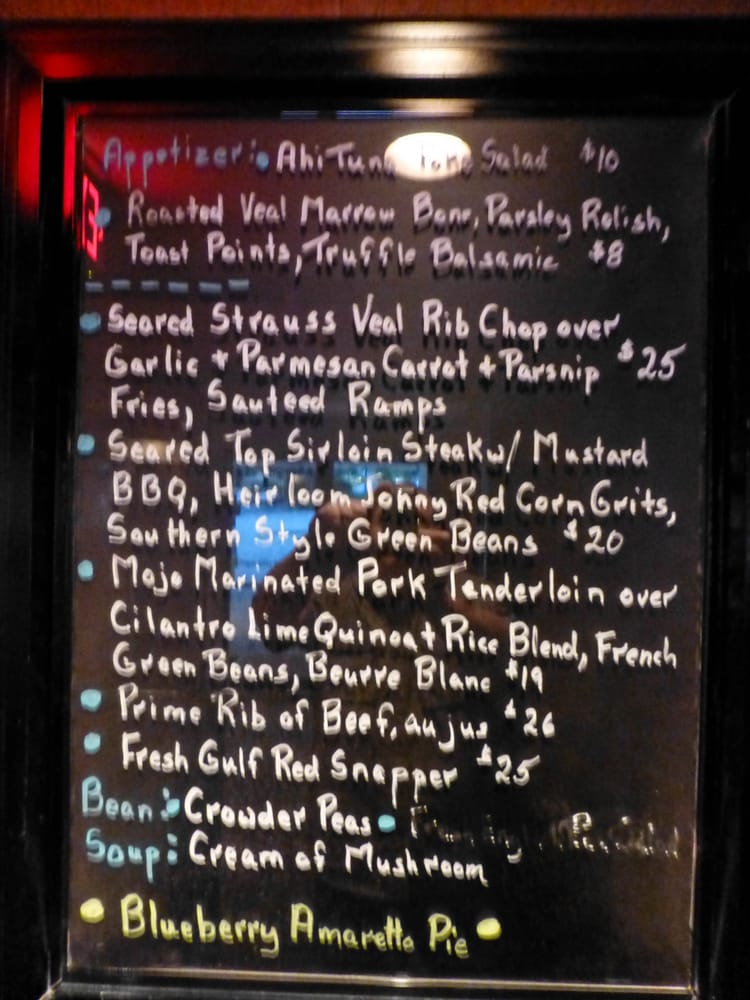 Appetizer: Ahi Tuna Poke Salad $10
Roasted Veal Marrow Bone, Parsley Relish,
Toast Points, Truffle Balsamic $8
Seared Strauss Veal Rib Chop over
Garlic + Parmesan Carrot + Parsnip $25
Fries, Sauteed Ramps
Seared Top Sirloin Steak w/ Mustard
BBQ, Heirloom Johny Red Corn Grits,
Southern Style Green Beans $20
Mojo Marinated Pork Tenderloin over
Cilantro Lime Quinoa + Rice Blend, French
Green Beans, Beurre Blanc $19
Prime Rib of Beef, au jus $26
Fresh Gulf Red Snapper $25
Bean: Crowder Peas
Soup: Cream of Mushroom
Blueberry Amaretto Pie